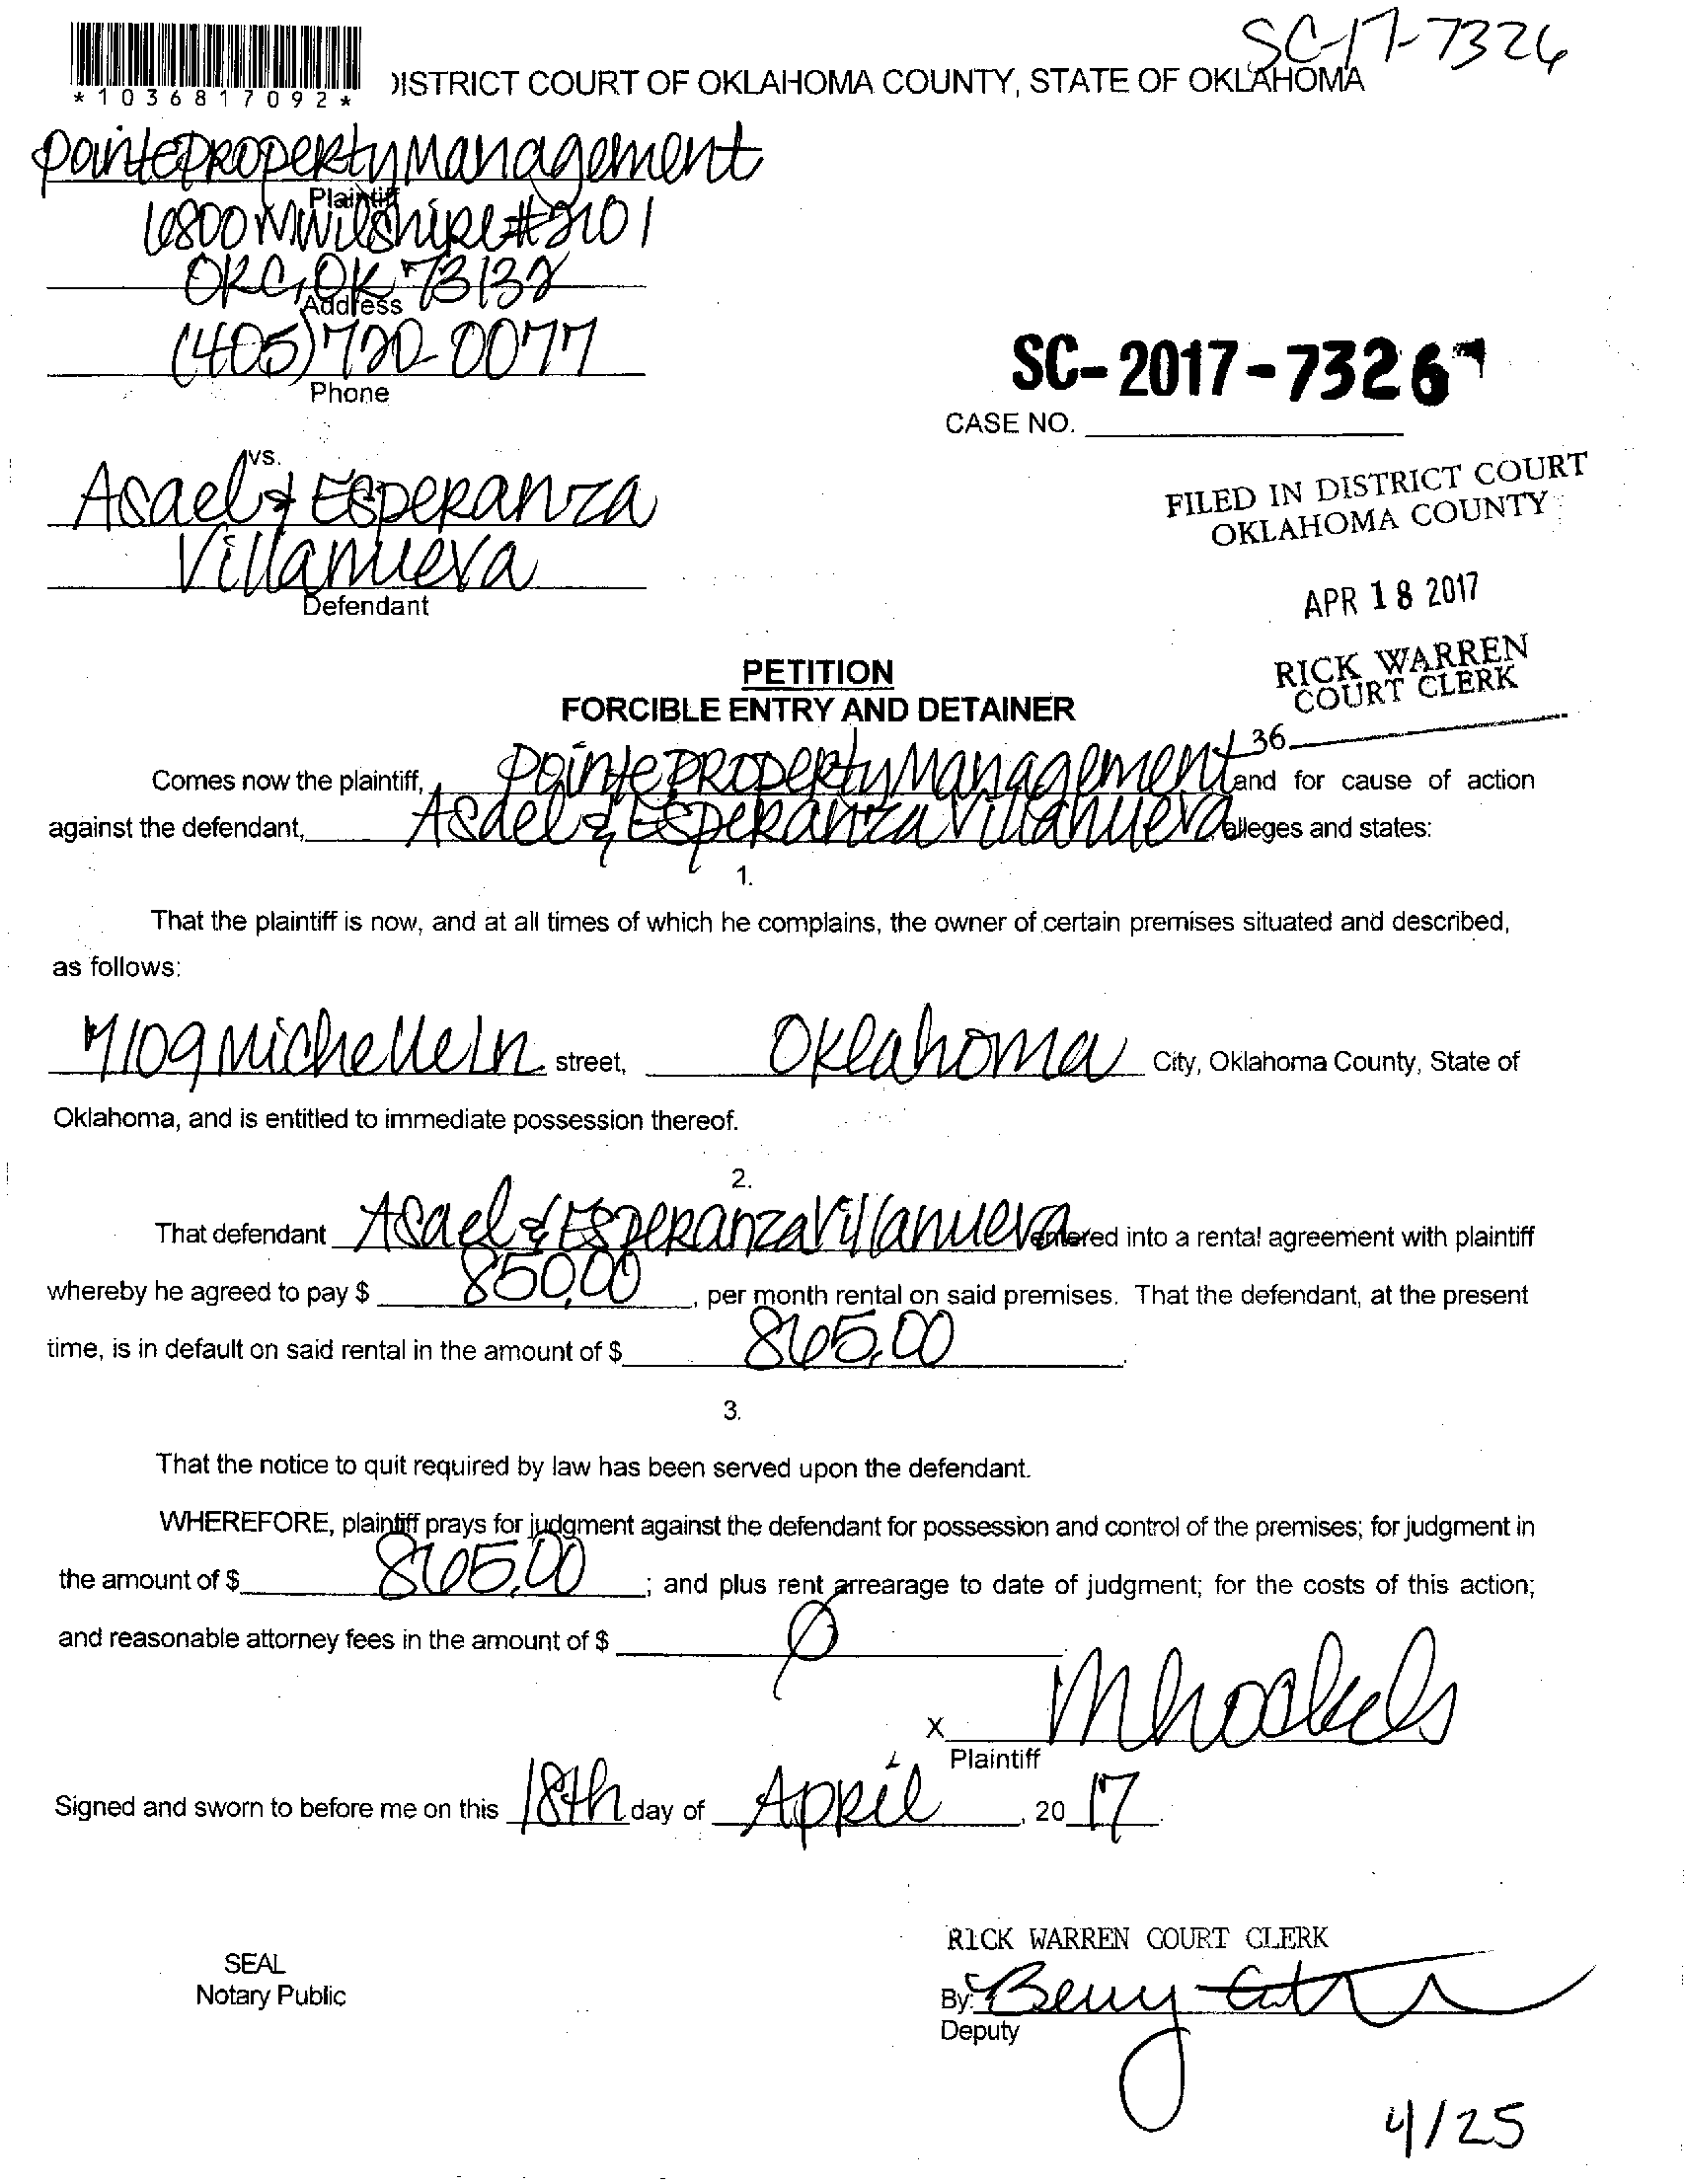 SC-17-7326
*1036817092*
DISTRICT COURT OF OKLAHOMA COUNTY, STATE OF OKLAHOMA
Pointe Property Management
Plaintiff
6800 NWilshire #2101
OKC, OK 73132
Address
(405) 720-0077
Phone
SC-2017-7326
CASE NO.
vs.
Asael & Esperanza
Villanueva
Defendant
FILED IN DISTRICT COURT
OKLAHOMA COUNTY
APR 18 2017
RICK WARREN
COURT CLERK
36
PETITION
FORCIBLE ENTRY AND DETAINER
Comes now the plaintiff, Pointe Property Management and for cause of action
against the defendant, Asael & Esperanza Villanueva alleges and states:
1.
That the plaintiff is now, and at all times of which he complains, the owner of certain premises situated and described,
as follows:
7109 Michelle Ln street, Oklahoma City, Oklahoma County, State of
Oklahoma, and is entitled to immediate possession thereof.
2.
That defendant Asael & Esperanza Villanueva entered into a rental agreement with plaintiff
whereby he agreed to pay $ 850.00, per month rental on said premises. That the defendant, at the present
time, is in default on said rental in the amount of $ 865.00.
3.
That the notice to quit required by law has been served upon the defendant.
WHEREFORE, plaintiff prays for judgment against the defendant for possession and control of the premises; for judgment in
the amount of $ 865.00; and plus rent arrearage to date of judgment; for the costs of this action;
and reasonable attorney fees in the amount of $ Ø
X
Plaintiff
Signed and sworn to before me on this 18th day of April, 20 17.
RICK WARREN COURT CLERK
SEAL
Notary Public
By:
Deputy
4/25